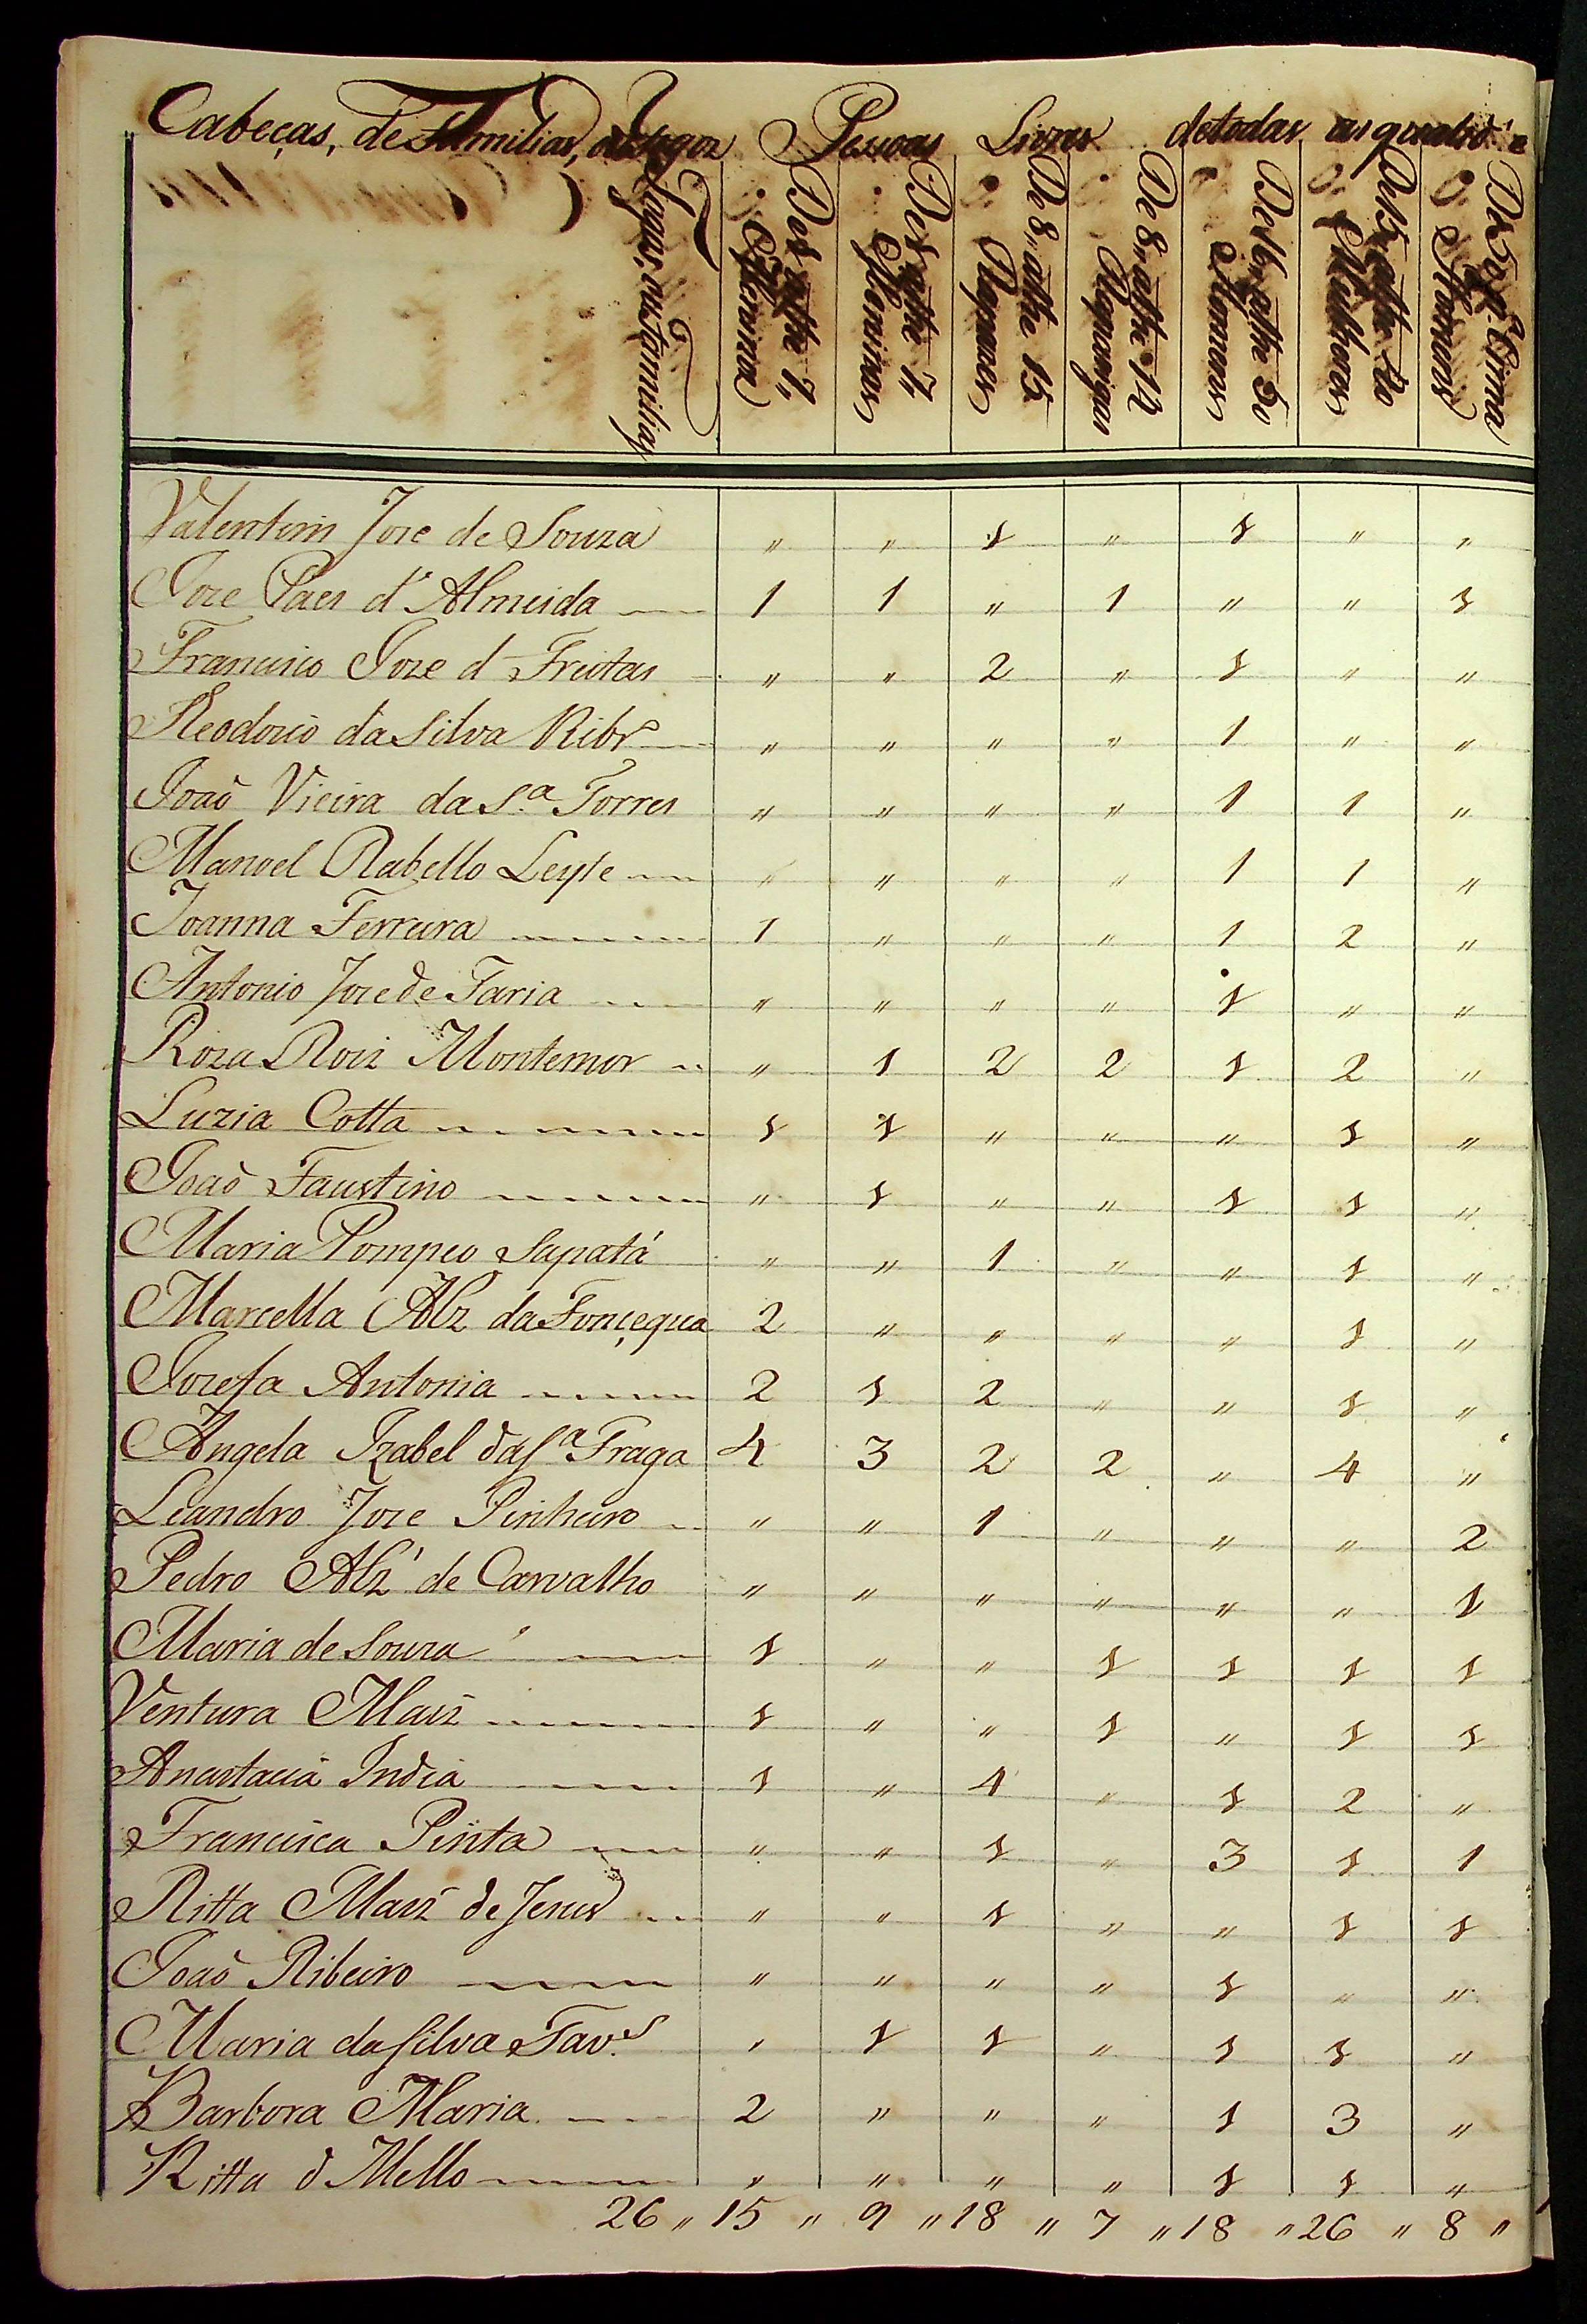 Cabeças, de Familias, ou Fogoz Pessoas Livres de todas as qualid.es
Fogos, ou Familias
De 1 athe 7, Meninos
De 1 athe 7, Meninas
De 8, athe 15 Rapazes
De 8, athe 12 Raparigas
De 16, athe 50 Homens
De 15 athe 40 Mulheres
De 50 p.a Cima Homens
Valentim Joze de Souza " " 1 " 1 " "
Joze Paes d'Almeida 1 1 " 1 " " 1
Francisco Joze d Freitas " " 2 " 1 " "
Theodozio da Silva Ribr.o " " " " 1 " "
Joaõ Vieira da S.a Torres " " " " 1 1 "
Manoel Rabello Leyte " " " " 1 1 "
Joanna Ferreira 1 " " " 1 2 "
Antonio Joze de Faria " " " " 1 " "
Roza Roiz Montemor " 1 2 2 1 2 "
Luzia Cotta 1 1 " " " 1 "
Joaõ Faustino " 1 " " 1 1 "
Maria Pompeo Sapatá " " 1 " " 1 "
Marcella Alz da Fonçequa 2 " " " " 1 "
Jozefa Antonia 2 1 2 " " 1 "
Angela Izabel da S.a Fraga 4 3 2 2 " 4 "
Leandro Joze Pinheiro " " 1 " " " 2
Pedro Alz' de Carvalho " " " " " " 1
Maria de Souza 1 " " 1 1 1 1
Ventura Maiz 1 " " 1 " 1 1
Anastacia India 1 " 4 " 1 2 "
Francisca Pinta " " 1 " 3 1 1
Ritta Maiz de Jesus " " 1 " " 1 1
Joaõ Ribeiro " " " " 1 " "
Maria da Silva Tav.s " 1 1 " 1 1 "
Barbora Maria 2 " " " 1 3 "
Ritta d Mello " " " " 1 1 "
26 " 15 " 9 " 18 " 7 " 18 " 26 " 8 "